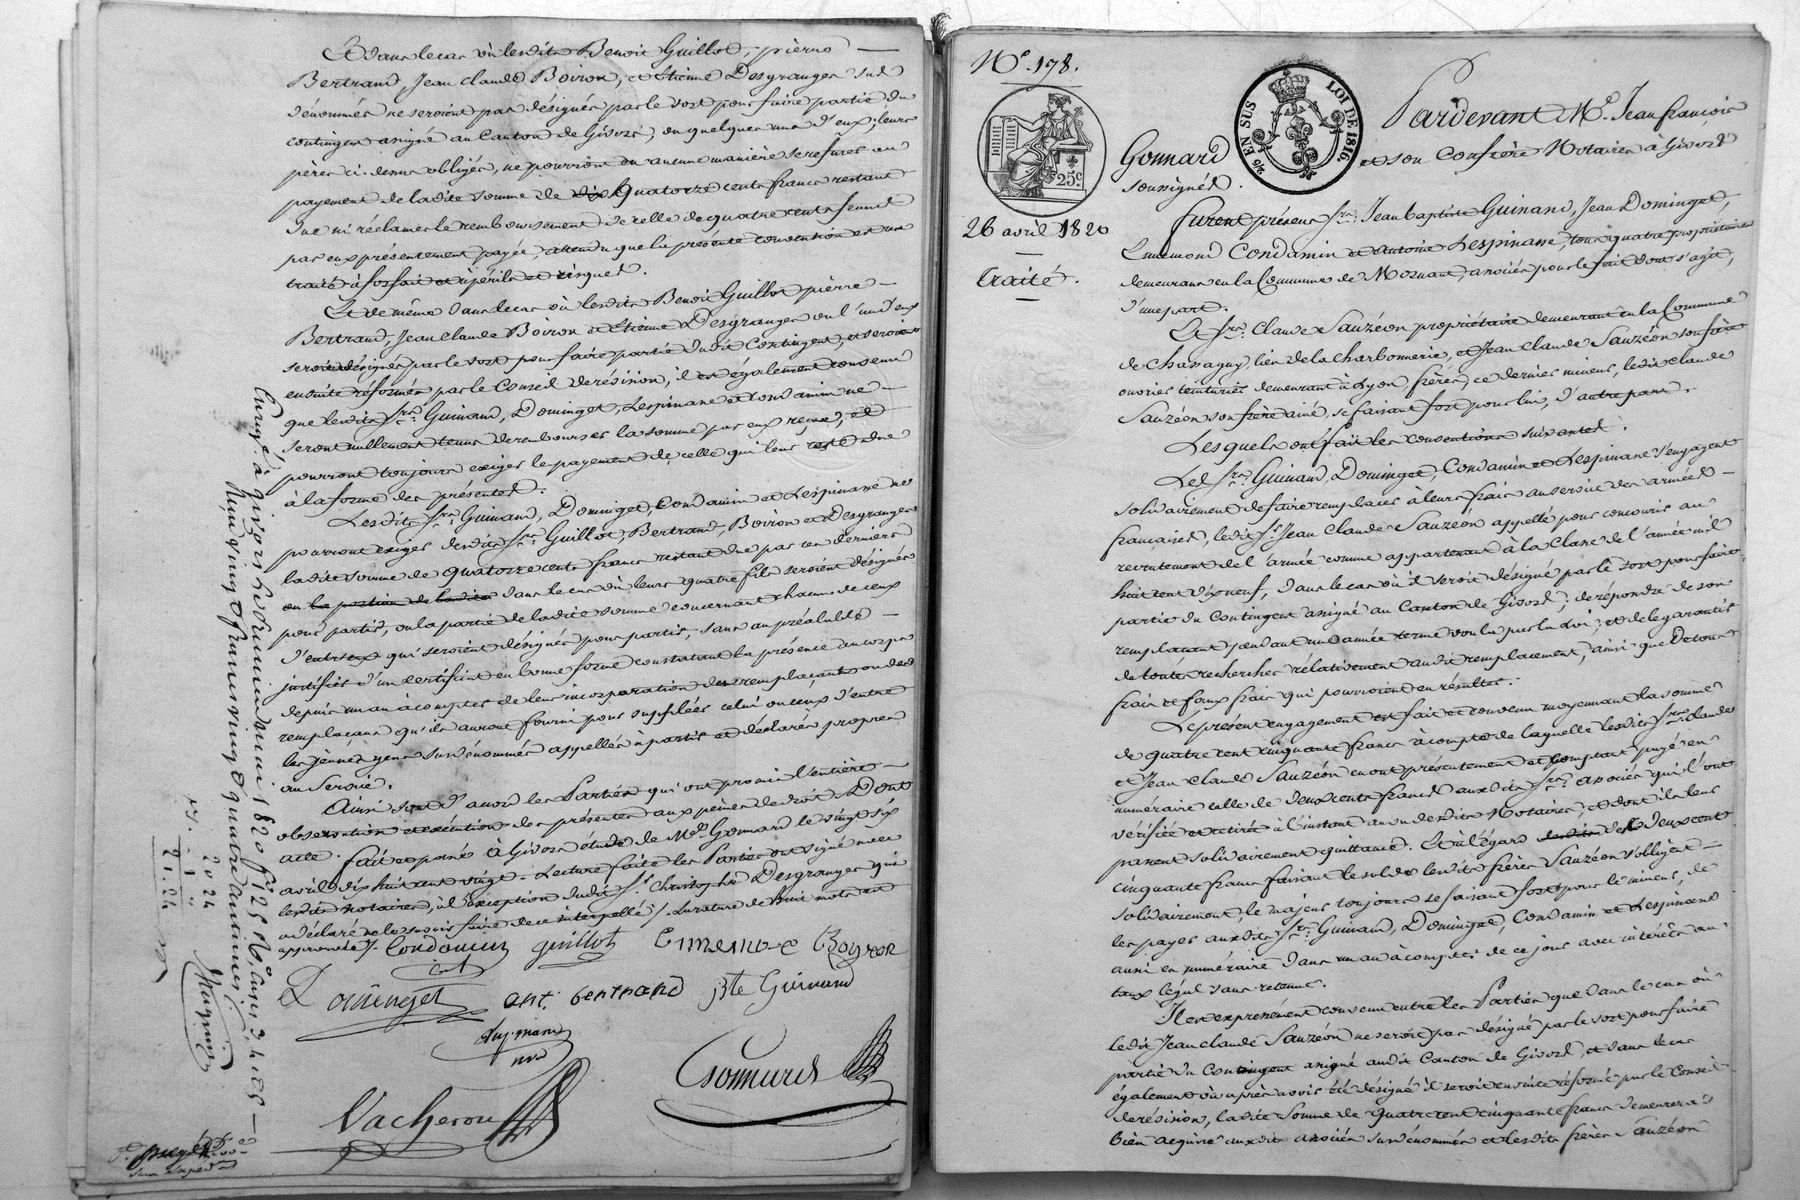 Et dans le cas où lesdits Benoit Guillot, pierre
Bertrand, Jean Claude Boiron, et Etienne Desgranges sus
dénommés ne seroient pas désignés par le sort pour faire partie du
contingent assigné au Canton de Givors, ou quelques uns d'eux; leurs
pères ci-dessus obligés, ne pourront en aucune manière se refuser au
payement de ladite somme de dix Quatorze cents francs restant
due ni réclamer le remboursement de celle de quatre cents francs
par eux présentement payée, attendu que la présente convention est un
traité à forfait et à périls et risques.
Et de même dans le cas où lesdits Benoit Guillot pierre
Bertrand, Jean Claude Boiron et Etienne Desgranges ou l'un d'eux
seroient désignés par le sort pour faire partie dudit Contingent, et seroient
ensuite réformés par le Conseil de révision, il est également convenu
que lesdits Srs. Guinand, Dominget, Lespinasse et Condamin ne
seront nullement tenus de rembourser la somme par eux reçue, et
pourront toujours exiger le payement de celle qui leur reste due
à la forme des présentes.
Lesdits Srs. Guinand, Dominget, Condamin et Lespinasse ne
pourront exiger desdits Srs. Guillot, Bertrand, Boiron et Desgranges
ladite somme de Quatorze cents francs restant due par ces derniers
ou la portion de ladite dans le cas où leurs quatre fils seroient désignés
pour partir, ou la partie de ladite somme concernant chacun de ceux
d'entr'eux qui seroient désignés pour partir, sans au préalable
justifier d'un certificat en bonne forme constatant la présence au corps
depuis un an à compter de leur incorporation des remplaçants ou des
remplaçans qu'ils auront fourni pour suppléer celui ou ceux d'entre
les jeunes gens susdénommés appellés à partir et déclarés propres
au Service.
Ainsi sont d'accord les Parties qui ont promis l'entière
observation et exécution des présentes aux peines de droit. Dont
acte. fait et passé à Givors étude de Me. Gonnard le vingt six
avril dix huit cent vingt. Lecture faite les Parties ont signé avec
lesdits notaires, à l'exception dudit Sr. Christophe Desgranges qui
a déclaré ne le savoir faire de ce interpellé / huit mots
approuvés /. Condamin guillot Enemond Boiron
Dominget ant. bertrand Jbte Guinand
Vacheron Gonnard
Enregé. à givors 1820 fo. 125
Reçu vingt
2024
21.24
No. 178.
26 avril 1820
Traité.
25c
96 EN SUS LOI DE 1816.
Pardevant Me. Jean françois
Gonnard et son Confrère Notaires à Givors
soussignés.
furent présens Srs. Jean baptiste Guinand, Jean Dominget,
Ennemond Condamin et antoine Lespinasse, tous quatre propriétaires
demeurans en la Commune de Mornant, associés pour le fait dont s'agit,
d'une part.
Et Srs. Claude Sauzéon propriétaire demeurant en la Commune
de Chassagny, lieu de la Charbonnerie, et Jean Claude Sauzéon son frère
ouvrier teinturier demeurant à Lyon, frères, ce dernier mineur, ledit Claude
Sauzéon son frère ainé, se faisant fort pour lui, d'autre part.
Lesquels ont fait les conventions suivantes.
Les Srs. Guinand, Dominget, Condamin et Lespinasse s'engagent
solidairement de faire remplacer à leurs frais au service des armées
françaises, ledit Sr. Jean Claude Sauzéon appellé pour concourir au
recrutement de l'armée comme appartenant à la Classe de l'année mil
huit cent dix neuf, dans le cas où il seroit désigné par le sort pour faire
partie du Contingent assigné au Canton de Givors; de répondre de son
remplaçant pendant une année terme voulu par la Loi; et de le garantir
de toutes recherches relativement audit remplacement, ainsi que de tous
frais et faux frais qui pourroient en résulter.
Le présent engagement est fait et convenu moyennant la somme
de quatre cent cinquante francs à compte de laquelle lesdits Srs. Claude
et Jean Claude Sauzéon en ont présentement et comptant payé en
numéraire celle de deux cents francs auxdits Srs. associés qui l'ont
vérifiée et retirée à l'instant au vu desdits Notaires, et dont ils leur
passent solidairement quittance. Et à l'égard des deux cent
cinquante francs faisant le solde lesdits frères Sauzéon s'obligent
solidairement, le majeur toujours se faisant fort pour le mineur, de
les payer auxdits Srs. Guinand, Dominget, Condamin et Lespinasse
aussi en numéraire dans un an à compter de ce jour avec intérêts au
taux légal sans retenue.
Il est expressément convenu entre les Parties que dans le cas où
ledit Jean Claude Sauzéon ne seroit pas désigné par le sort pour faire
partie du Contingent assigné audit Canton de Givors, et dans le cas
également où après avoir été désigné il seroit ensuite réformé par le Conseil
de révision, ladite Somme de Quatre cent cinquante francs demeurera
bien acquise auxdits associés susdénommés et lesdits frères Sauzéon